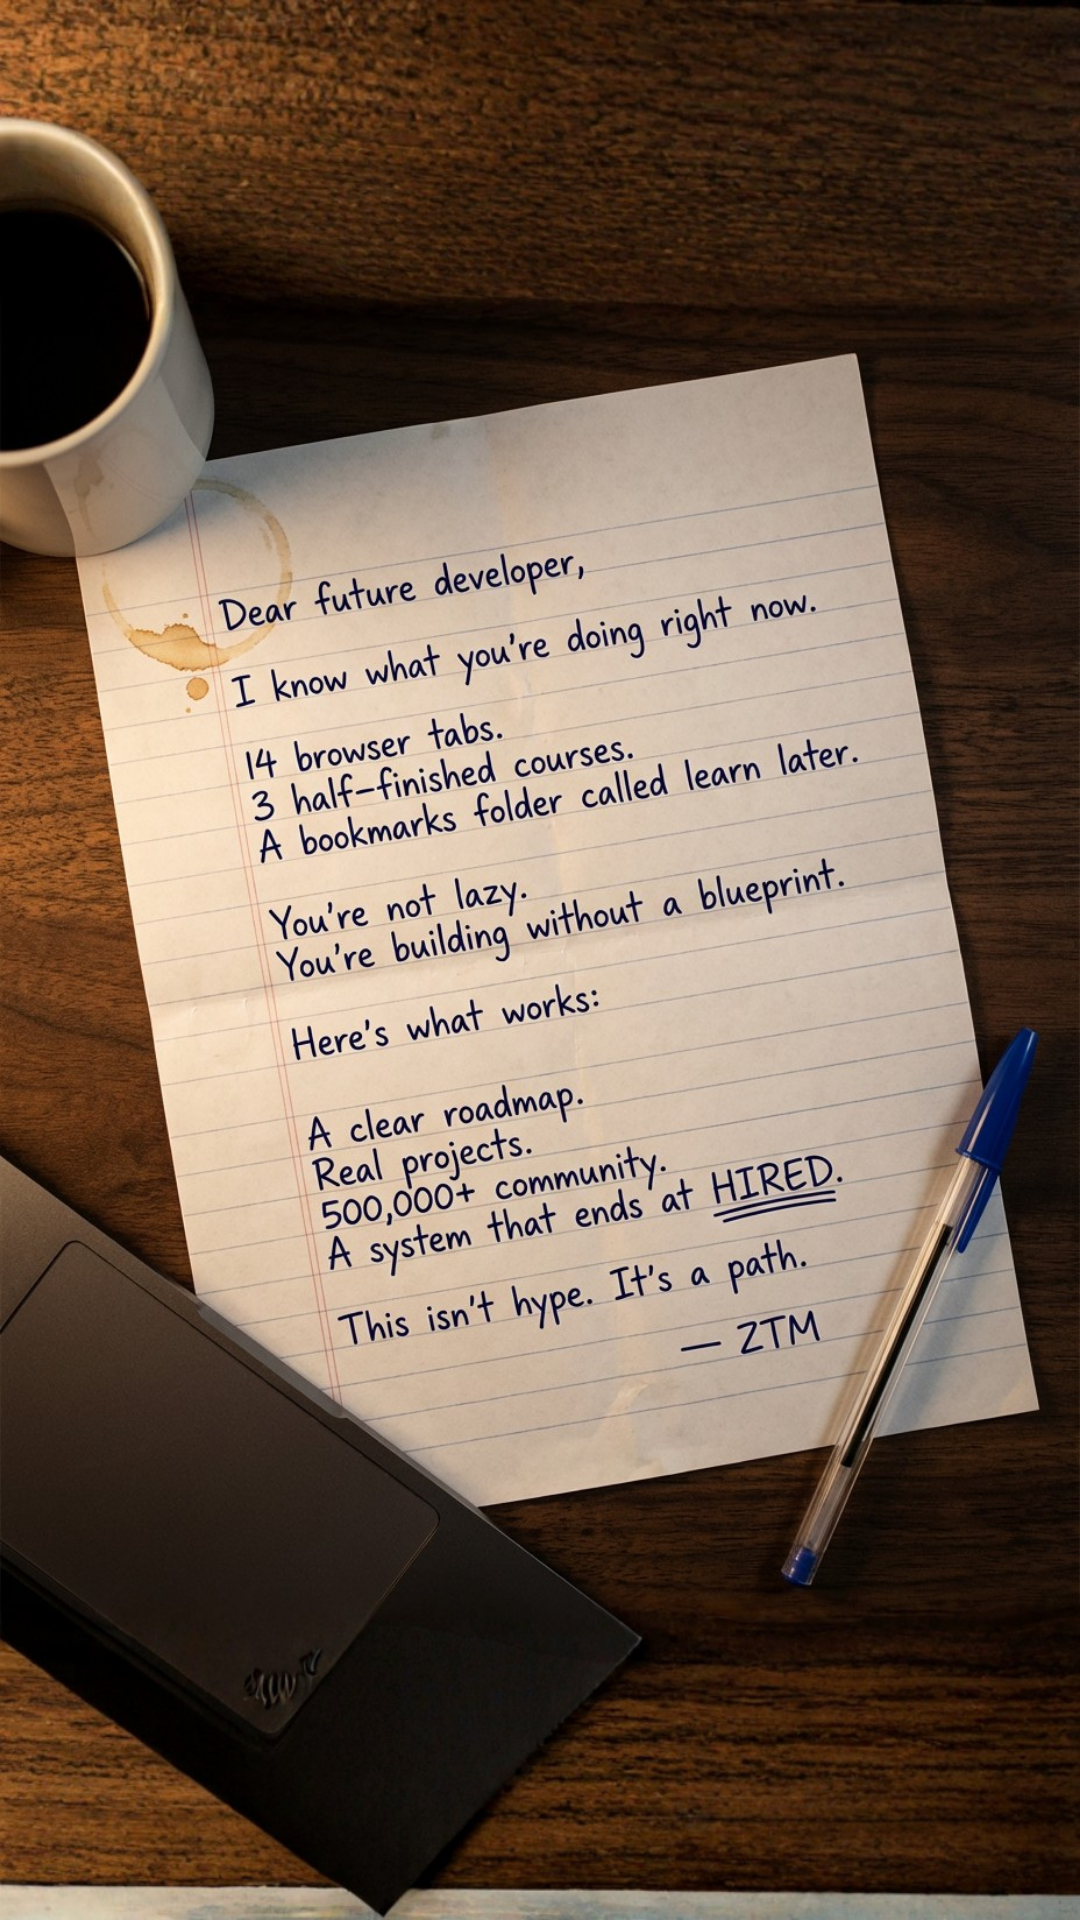 Dear future developer,
I know what you're doing right now.
14 browser tabs.
3 half-finished courses.
A bookmarks folder called learn later.
You're not lazy.
You're building without a blueprint.
Here's what works:
A clear roadmap.
Real projects.
500,000+ community.
A system that ends at HIRED.
This isn't hype. It's a path.
— ZTM